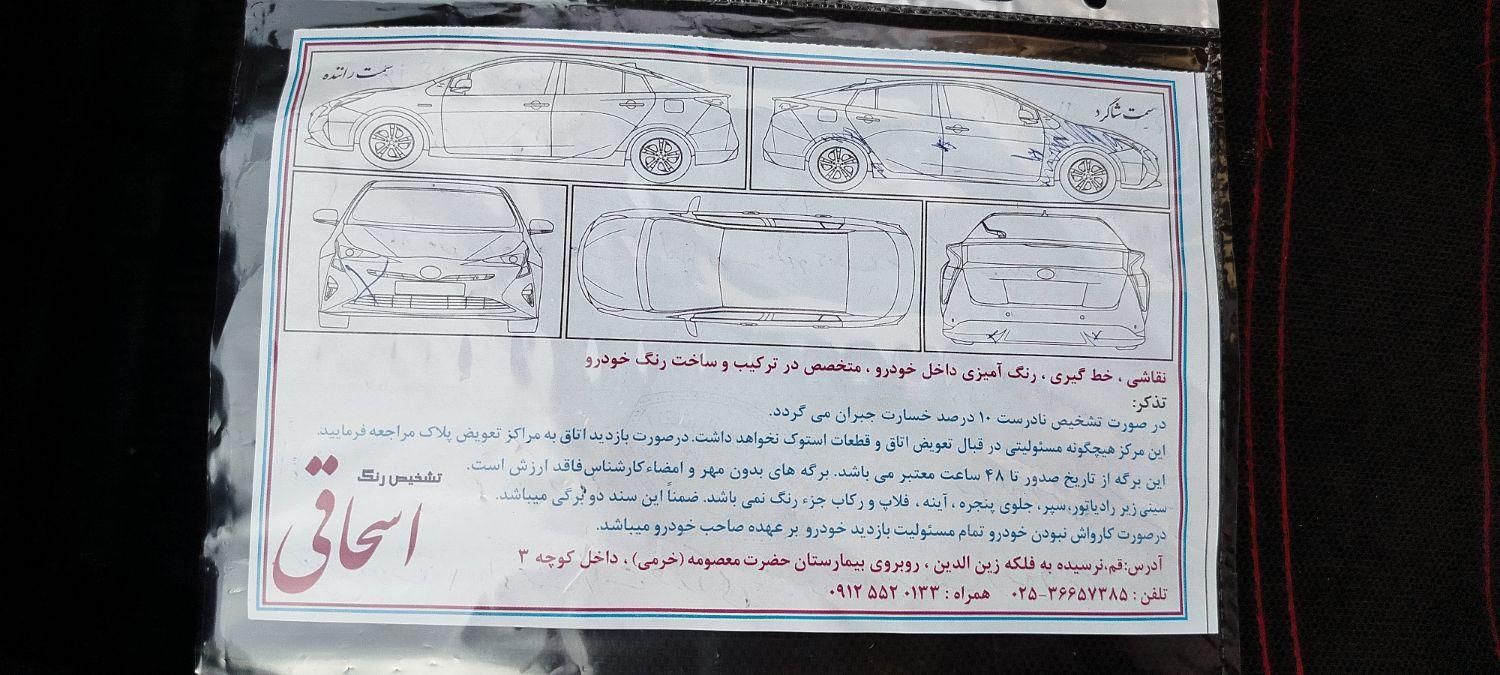 سمت راننده
سمت شاگرد
نقاشی ، خط گیری ، رنگ آمیزی داخل خودرو ، متخصص در ترکیب و ساخت رنگ خودرو
تذکر:
در صورت تشخیص نادرست ۱۰ درصد خسارت جبران می گردد.
این مرکز هیچگونه مسئولیتی در قبال تعویض اتاق و قطعات استوک نخواهد داشت. درصورت بازدید اتاق به مراکز تعویض پلاک مراجعه فرمایید.
این برگه از تاریخ صدور تا ۴۸ ساعت معتبر می باشد. برگه های بدون مهر و امضاء کارشناس فاقد ارزش است.
سینی زیر رادیاتور، سپر، جلوی پنجره ، آینه ، فلاپ و رکاب جزء رنگ نمی باشد. ضمناً این سند دو برگی میباشد.
درصورت کارواش نبودن خودرو تمام مسئولیت بازدید خودرو بر عهده صاحب خودرو میباشد.
تشخیص رنگ
اسحاقی
آدرس:قم،نرسیده به فلکه زین الدین ، روبروی بیمارستان حضرت معصومه (خرمی) ، داخل کوچه ۳
تلفن : ۳۶۶۵۷۳۸۵-۰۲۵ همراه : ۰۱۳۳ ۵۵۲ ۰۹۱۲